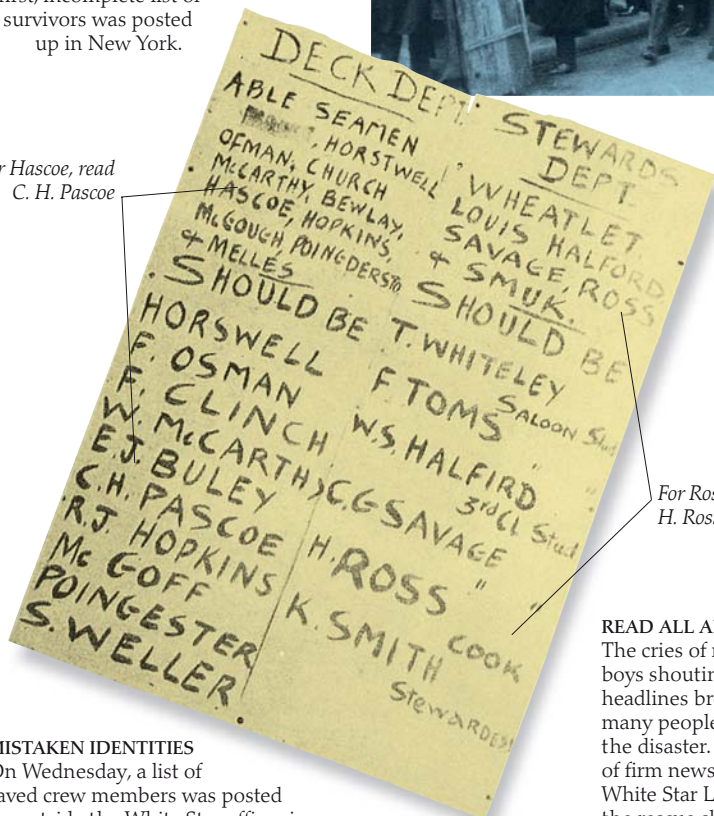 first, incomplete list of
survivors was posted
up in New York.
r Hascoe, read
C. H. Pascoe
DECK DEPT.
ABLE SEAMEN
, HORSTWELL
OFMAN, CHURCH
McCARTHY, BEWLAY,
HASCOE, HOPKINS,
McGOUGH, POINGDERSTO
& MELLES
SHOULD BE
HORSWELL
F. OSMAN
F. CLINCH
W. McCARTHY
E.J. BULEY
C.H. PASCOE
R.J. HOPKINS
Mc GOFF
POINGESTER
S. WELLER
STEWARDS
DEPT.
WHEATLET,
LOUIS HALFORD
SAVAGE, ROSS
& SMUK.
SHOULD BE
T. WHITELEY
F TOMS SALOON Std
W.S. HALFIRD " "
C.G SAVAGE 3rd Cl Stud
H. ROSS " "
K. SMITH COOK
Stewardess
For Ros
H. Ross
READ ALL A
The cries of
boys shoutin
headlines br
many people
the disaster.
of firm news
White Star L
MISTAKEN IDENTITIES
On Wednesday, a list of
aved crew members was posted